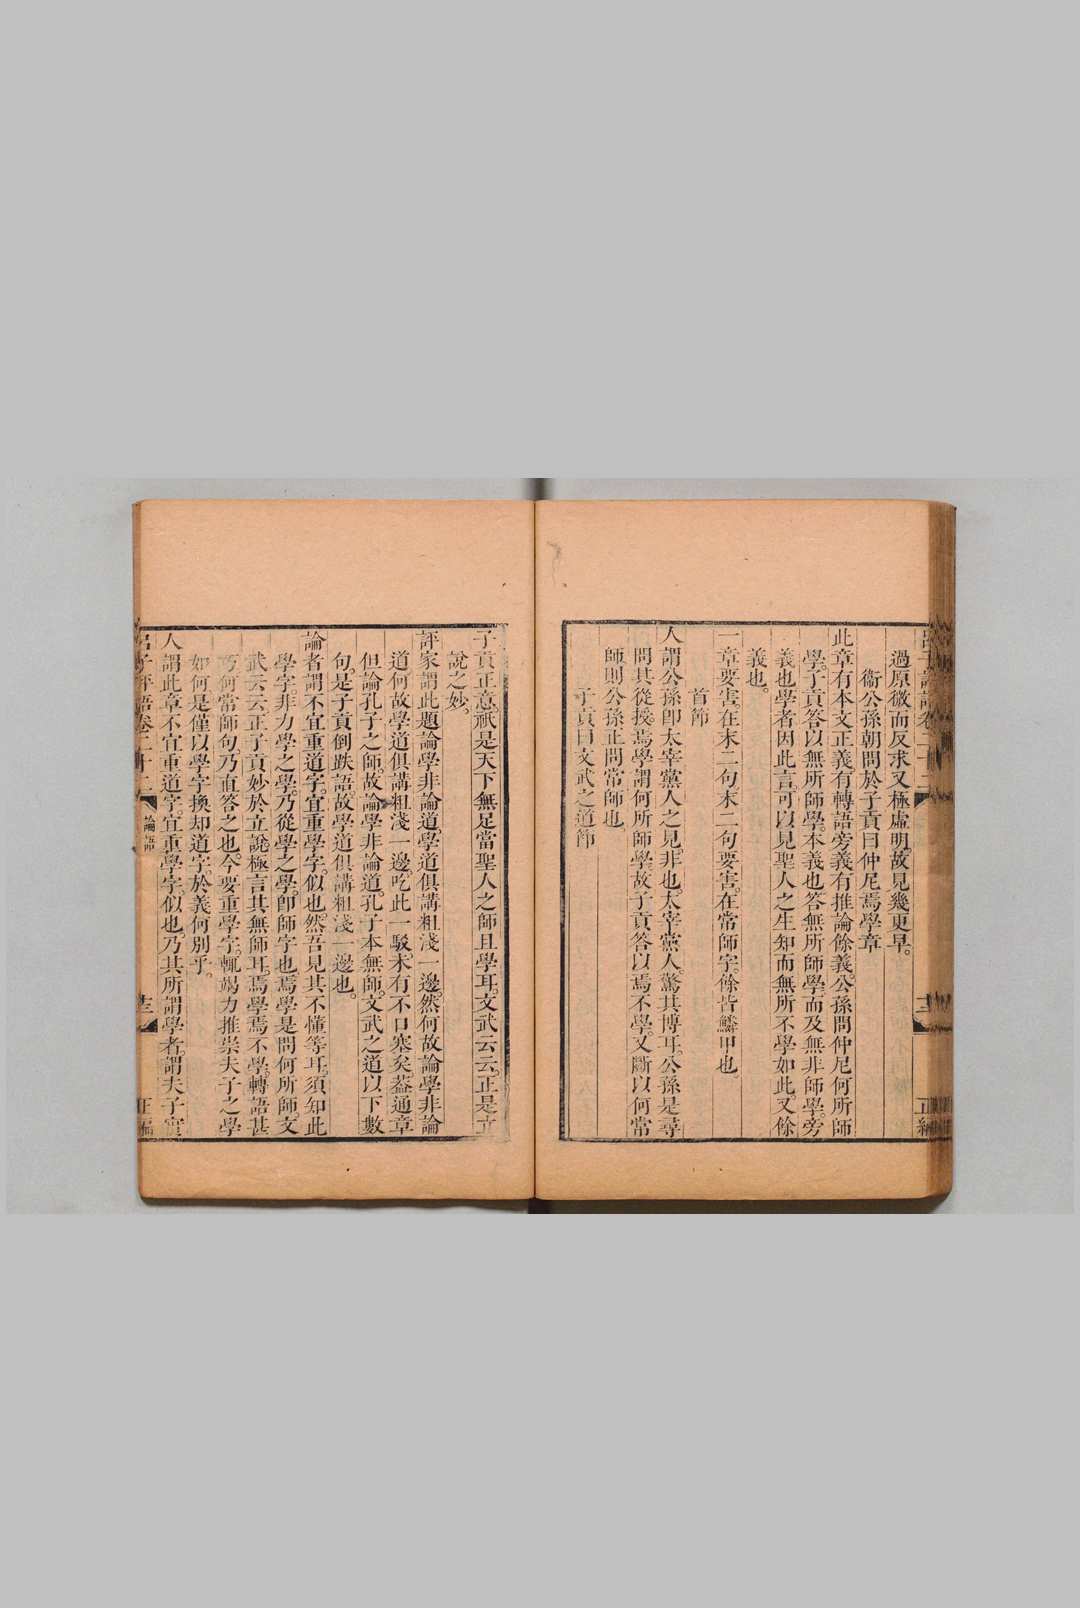 呂子評語卷二十二
十三
正編
過原微而反求又極虛明故見幾更早。
衞公孫朝問於子貢曰仲尼焉學章
此章有本文正義有轉語旁義有推論餘義。公孫問仲尼何所師
學。子貢答以無所師學。本義也答無所師學而及無非師學。旁
義也學者因此言。可以見聖人之生知而無所不學如此。又餘
義也。
一章要害。在末二句。末二句要害。在常師字。餘皆鱗甲也。
首節
人謂公孫卽太宰黨人之見。非也。太宰黨人。驚其博耳。公孫是尋
問其從授。焉學謂何所師學。故子貢答以焉不學。又斷以何常
師則公孫止問常師也
子貢曰文武之道節
子貢正意。祇是天下無足當聖人之師且學耳。文武云云。正是立
說之妙。
評家謂此題論學非論道。學道俱講粗淺一邊。然何故論學非論
道。何故學道俱講粗淺一邊。吃此一駁。未有不口塞矣。葢通章
但論孔子之師。故論學非論道。孔子本無師。文武之道以下數
句。是子貢倒跌語。故學道俱講粗淺一邊也。
論者謂不宜重道字。宜重學字。似也。然吾見其不懂等耳。須知此
學字非力學之學。乃從學之學。卽師字也。焉學是問何所師。文
武云云。正子貢妙於立說。極言其無師耳。焉學焉不學。轉語甚
巧。何常師句乃直答之也。今要重學字。輒竭力推崇夫子之學
如何是僅以學字換却道字。於義何別乎。
人謂此章不宜重道字。宜重學字。似也乃其所謂學者。謂夫子實
呂子評語卷二十二
論語
十三
正編